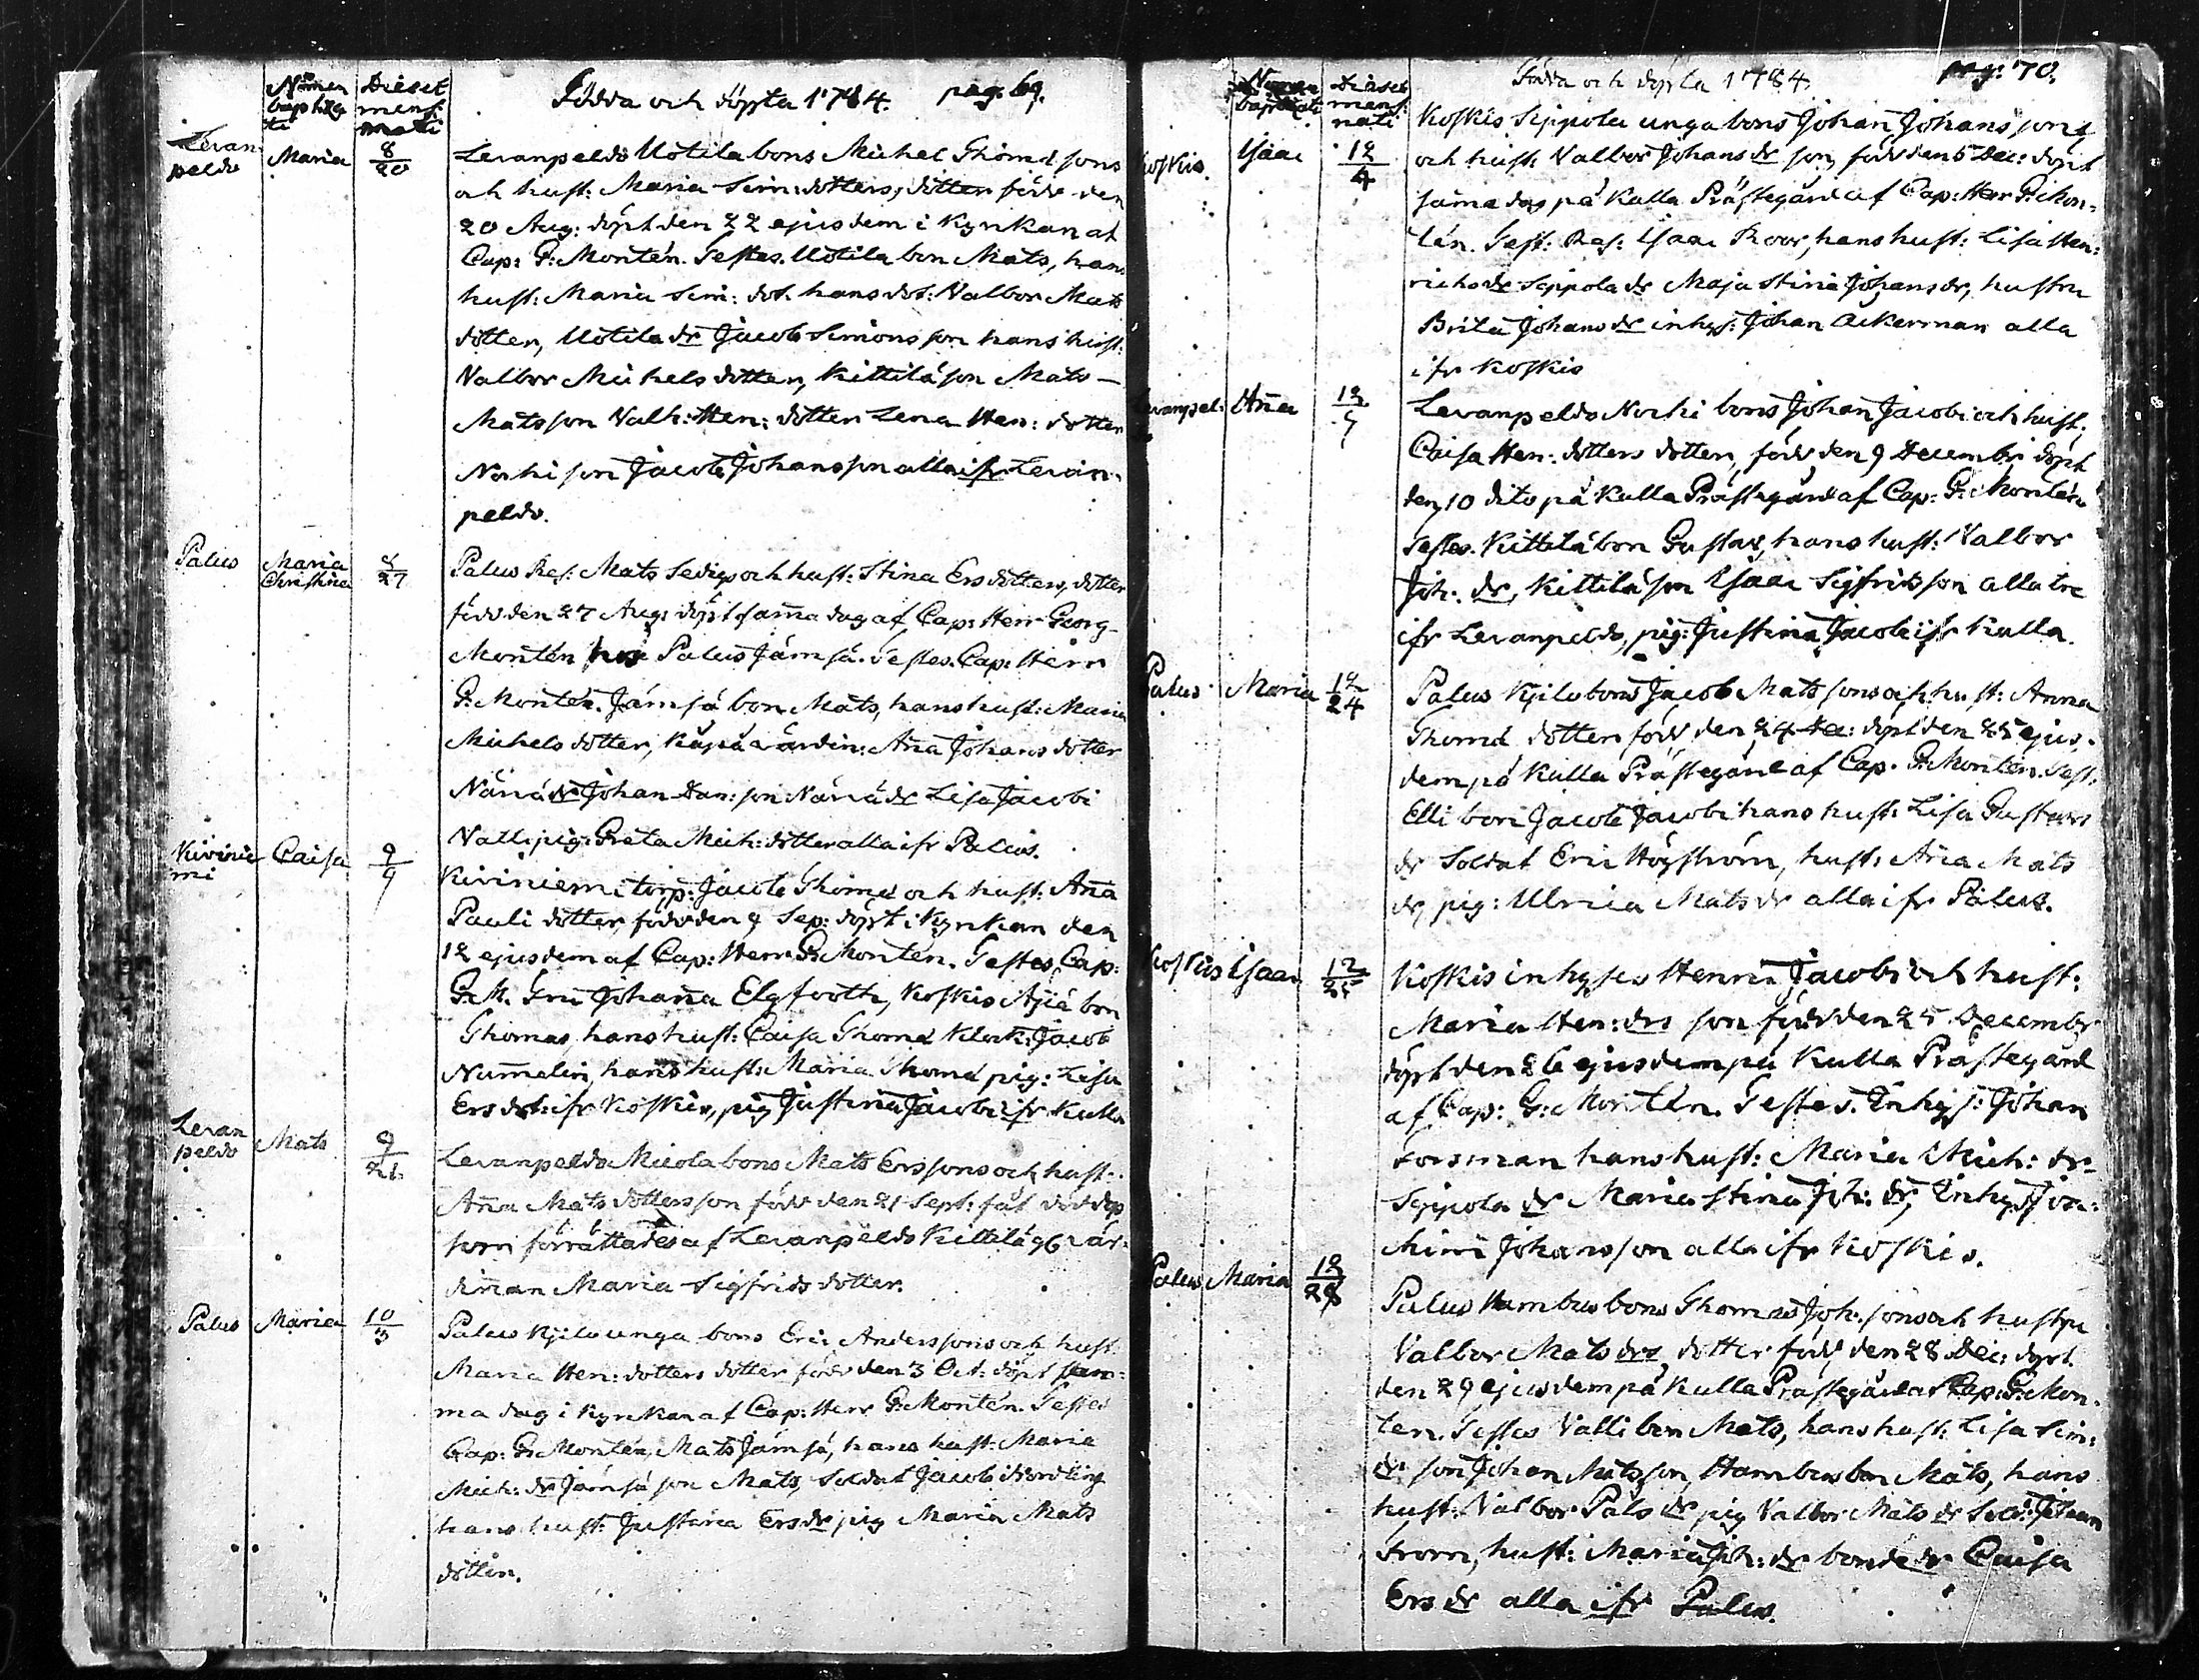 Nomen baptizati
Dies et mens: nati
Födda och döpta 1784. pag. 69.
Levanpeldo Maria 8/20
Levanpeldo Uotila bons Michel Thomæ sons
och hust: Maria Sim: dotters, dotter född den
20 Aug: döpt den 22 ejusdem i Kyrkan af
Cap: G: Montén. Testes. Uotila bon Mats, hans
hust: Maria Sim: dot. hans dot: Valbor Mats
dotter, Uotila dr Jacob Simonsson hans hust:
Valbor Michelsdotter, Kittilä son Mats
Matsson Valb: Hen: dotter Lena Hen: dotter
Norki son Jacob Johansson alla ifr Levan-
peldo.
Palus Maria Christina 8/27
Palus Ras: Mats Sedigs och hust: Stina Ersdotters, dotter
född den 27 Aug: döpt sam̄a dag af Cap: Herr Georg
Montén hos Palus Jämsä. Testes. Cap: Herr
G: Montén. Jämsä bon Mats, hans hust: Maria
Michelsdotter, Käpä värdin: An̄a Johansdotter
Närvä dr Johan Dan: son: Närvä dr Lisa Jacobi
Valli pig: Greta Mich: dotter alla ifr Palus.
Kiviniemi Caisa 9/9
Kiviniemi torp: Jacob Thomæ och hust: An̄a
Pauli dotter, född den 9 Sep: döpt i Kyrkan den
12 ejusdem af Cap: Herr G: Montén. Testes, Cap:
G: M. Gru Johan̄a Elgfooth, Koskis Äijä bon
Thomas, hans hust: Caisa Thomæ Klock: Jacob
Num̄elin, hans hust: Maria Thomæ pig: Lisa
Ers dot: ifr Koskis, pig Justina Jacobi ifr Kulla
Levanpeldo Mats 9/21
Levanpeldo Micola bons Mats Erssons och hust:
An̄a Matsdotters son född den 21 Sept: fåt nöddop
som förrättades af Levanpeldo Kittilä g. vär-
din̄an Maria Sigfridsdotter.
Palus Maria 10/3
Palus Kjilo unga bons Eric Anderssons och hust
Maria Hen: dotters dotter född den 3 Oct: döpt sam-
ma dag i Kyrkan af Cap: Herr G: Montén. Testes
Cap: G: Montén, Mats Jämsä, hans hust: Maria
Mich: dr Jämsä son Mats, Soldat Jacob
hans hust: Justina Ersdr pig Maria Mats
dotter.
Nomen baptizati
Dies et mens: nati
Födda och döpta 1784. pag: 70.
Koskis. Isaac 12/4
Koskis Seppola unga bons Johan Johans sons
och hust: Valbor Johansdr son, född den 5 Dec: döpt
sam̄a dag på Kulla Prästegård af Cap: Herr G: Mon-
tén. Test: Ras: Isaac Roor, hans hust: Lisa Hen-
richsdr Seppola dr Maja Stina Johansdr, hustru
Brita Johansdr inhys: Johan Åckerman alla
ifr Koskis
Levanpel: An̄a 12/9
Levanpeldo Norki bons Johan Jacobi och hust:
Caisa Hen: dotters dotter, född den 9 Decembr döpt
den 10 dito på Kulla Prästegård af Cap: G: Montén
Testes. Kittilä bon Gustav, hans hust: Valbor
Joh: dr, Kittilä son Isaac Sigfridsson alla tre
ifr Levanpeldo, pig: Justina Jacobi ifr Kulla.
Palus Maria 12/24
Palus Kjilo bons Jacob Matssons och hust: Anna
Thomæ dotter född den 24 Dec: döpt den 25 ejus-
dem på Kulla Prästegård af Cap. G: Montén. Test:
Elli bon Jacob Jacobi hans hust: Lisa Gustavs
dr Soldat Eric Högström, hust: An̄a Mats
dr, pig: Ulrica Matsdr alla ifr Palus.
Koskis Isaac 12/25
Koskis inhyses Henric Jacobi och hust:
Maria Hen: drs son född den 25 Decembr
döpt den 26 ejusdem på Kulla Prästegård
af Cap: G: Montén. Testes. Inhys: Johan
Forsman hans hust: Maria Mich: dr
Seppola dr Maria Stina Joh: dr, Inhys Joa-
chim Johansson alla ifr Koskis.
Palus Maria 12/28
Palus Hambus bons Thomas Joh: sons och hustru
Valbor Mats drs, dotter född den 28 Dec: döpt
den 29 ejusdem på Kulla Prästegård af Cap: G: Mon-
ten. Testes Valli bon Mats, hans hust: Lisa Sim:
dr son Johan Matsson, Hambus bon Mats, hans
hust: Valbor Pals dr pig Valbor Mats dr Sold: Johan
Strom, hust: Maria Joh: dr bonde dr Caisa
Ers dr alla ifr Palus.